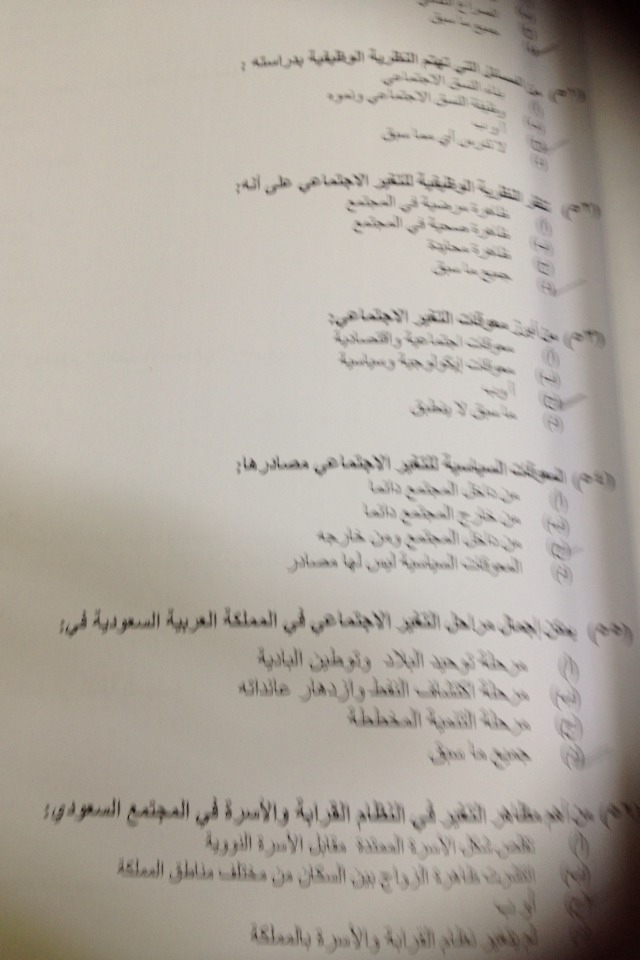 جميع ما سبق
من المسائل التي تهتم النظرية الوظيفية بدراسته :
بناء النسق الاجتماعي
وظيفة النسق الاجتماعي ونموه
أ و ب
لا شيء مما سبق
تنظر النظرية الوظيفية للتغير الاجتماعي على أنه:
ظاهرة مرضية في المجتمع
ظاهرة صحية في المجتمع
ظاهرة محايدة
جميع ما سبق
من أبرز معوقات التغير الاجتماعي:
معوقات اجتماعية واقتصادية
معوقات إيكولوجية وسياسية
أ و ب
ما سبق لا ينطبق
المعوقات السياسية للتغير الاجتماعي مصادرها:
من داخل المجتمع دائما
من خارج المجتمع دائما
من داخل المجتمع ومن خارجه
المعوقات السياسية ليس لها مصادر
يمكن إجمال مراحل التغير الاجتماعي في المملكة العربية السعودية في:
مرحلة توحيد البلاد وتوطين البادية
مرحلة اكتشاف النفط وازدهار عائداته
مرحلة التنمية المخططة
جميع ما سبق
من أهم مظاهر التغير في النظام القرابة والأسرة في المجتمع السعودي:
تقلص شكل الأسرة الممتدة مقابل الأسرة النووية
انتشرت ظاهرة الزواج بين السكان من مختلف مناطق المملكة
أ و ب
لم يتغير نظام القرابة والأسرة بالمملكة